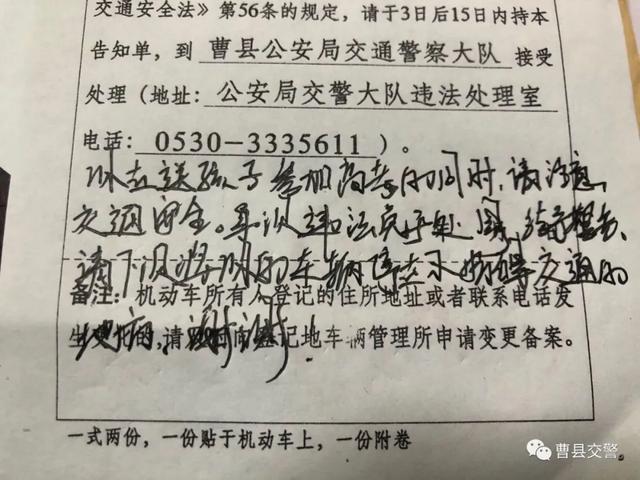 交通安全法》第56条的规定，请于3日后15日内持本
告知单，到 曹县公安局交通警察大队 接受
处理（地址：公安局交警大队违法处理室
电话：0530-3335611）。
你在送孩子参加高考的同时，请注意
交通安全。本次违法免于处罚，给予警告，
请下次将你的车辆停在不妨碍交通的
地方，谢谢！
备注：机动车所有人登记的住所地址或者联系电话发
生变化的，请及时向登记地车辆管理所申请变更备案。
一式两份，一份贴于机动车上，一份附卷
曹县交警